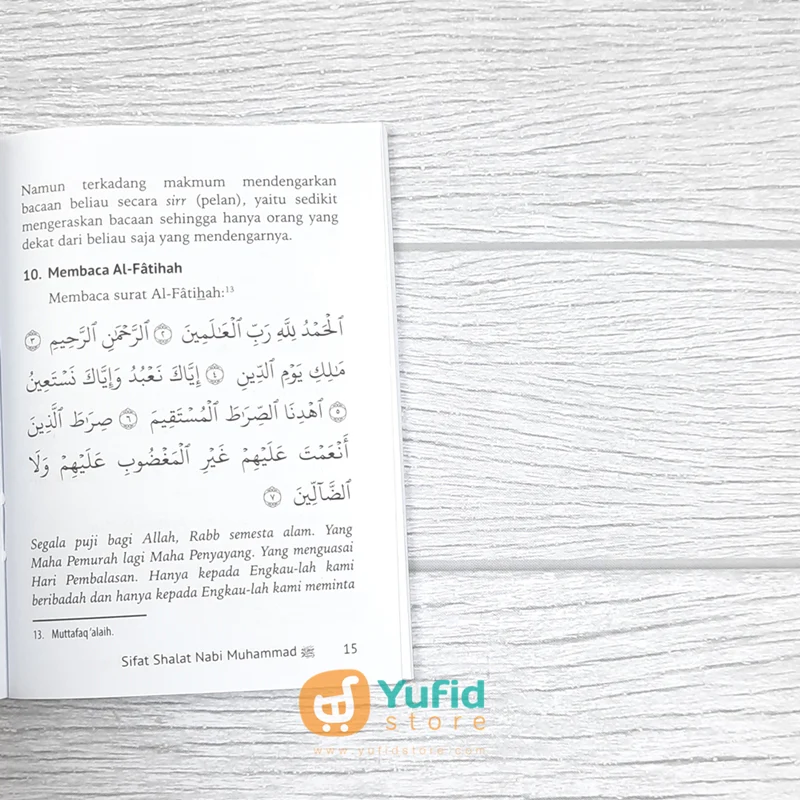 Namun terkadang makmum mendengarkan
bacaan beliau secara sirr (pelan), yaitu sedikit
mengeraskan bacaan sehingga hanya orang yang
dekat dari beliau saja yang mendengarnya.
10. Membaca Al-Fâtihah
Membaca surat Al-Fâtihah:13
ٱلْحَمْدُ لِلَّهِ رَبِّ ٱلْعَٰلَمِينَ ٢ ٱلرَّحْمَٰنِ ٱلرَّحِيمِ ٣
مَٰلِكِ يَوْمِ ٱلدِّينِ ٤ إِيَّاكَ نَعْبُدُ وَإِيَّاكَ نَسْتَعِينُ
٥ ٱهْدِنَا ٱلصِّرَٰطَ ٱلْمُسْتَقِيمَ ٦ صِرَٰطَ ٱلَّذِينَ
أَنْعَمْتَ عَلَيْهِمْ غَيْرِ ٱلْمَغْضُوبِ عَلَيْهِمْ وَلَا
ٱلضَّآلِّينَ ٧
Segala puji bagi Allah, Rabb semesta alam. Yang
Maha Pemurah lagi Maha Penyayang. Yang menguasai
Hari Pembalasan. Hanya kepada Engkau-lah kami
beribadah dan hanya kepada Engkau-lah kami meminta
13. Muttafaq 'alaih.
Sifat Shalat Nabi Muhammad ﷺ 15
Yufid
store
www.yufidstore.com